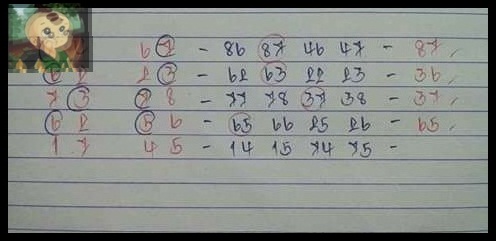 6 7 - 86 87 46 47 - 87,
6 2 2 3 - 62 63 22 23 - 36,
7 3 7 8 - 77 78 37 38 - 37,
6 2 5 6 - 65 66 25 26 - 65,
1 7 4 5 - 14 15 74 75 -